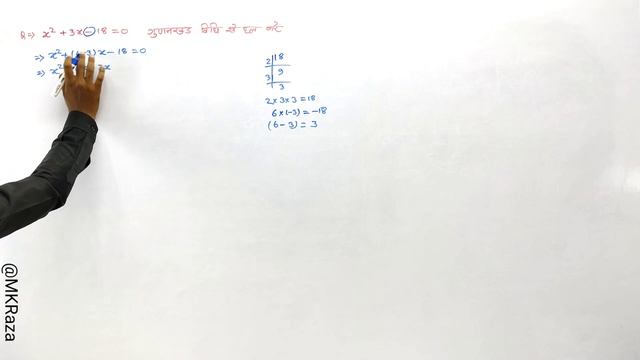 Q ⇒ x² + 3x - 18 = 0 गुणनखण्ड विधि से हल करें
⇒ x² + (6-3)x - 18 = 0
⇒ x²
2 | 18
3 | 9
3
2×3×3 = 18
6×(-3) = -18
(6-3) = 3
@MKRaza